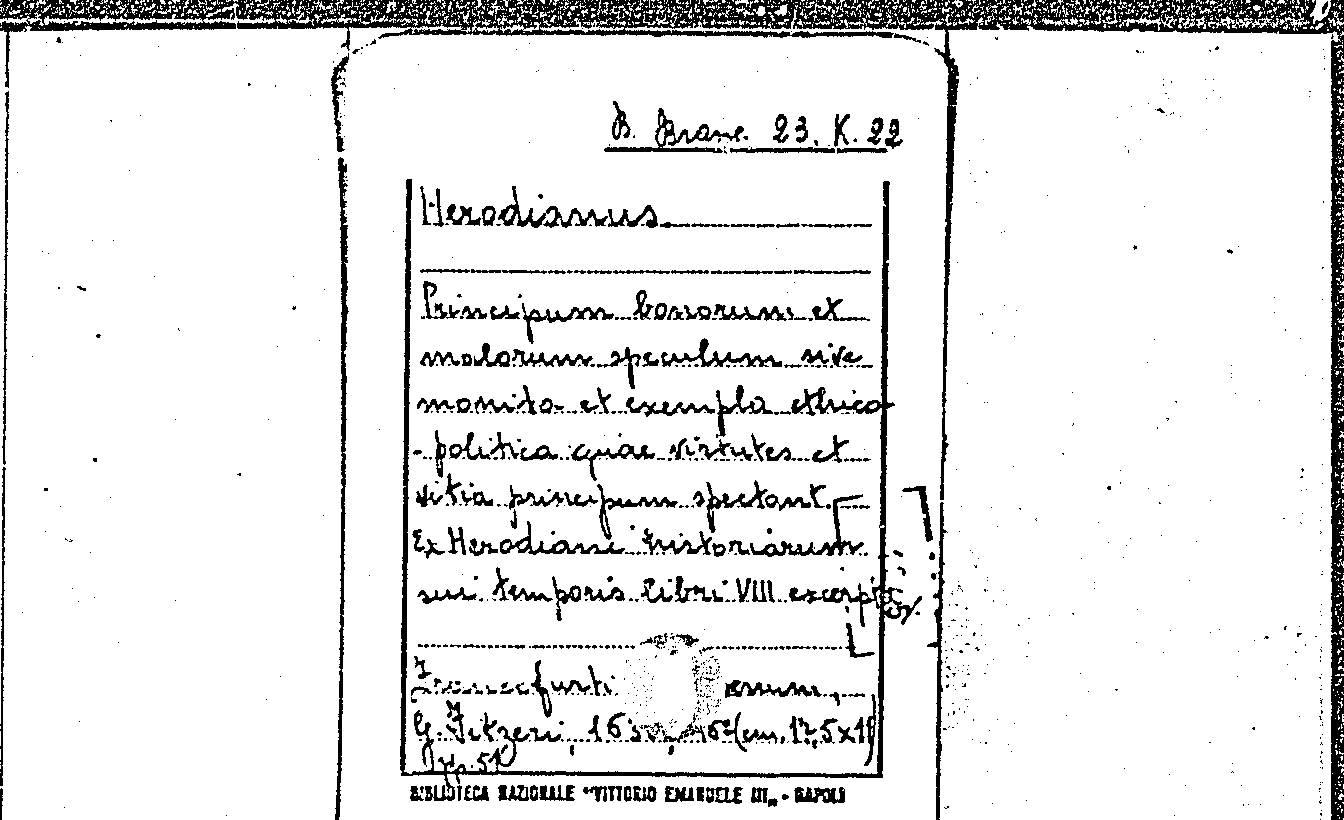 B. Branc. 23. K. 22
Herodianus.
Principum bonorum et
malorum speculum sive
monita et exempla ethico
-politica quae virtutes et
vitia principum spectant.
Ex Herodiani historiarum
sui temporis libri VIII excerpta
Francofurti
G. Fitzeri,
pp. 51
BIBLIOTECA NAZIONALE "VITTORIO EMANUELE III„ - NAPOLI